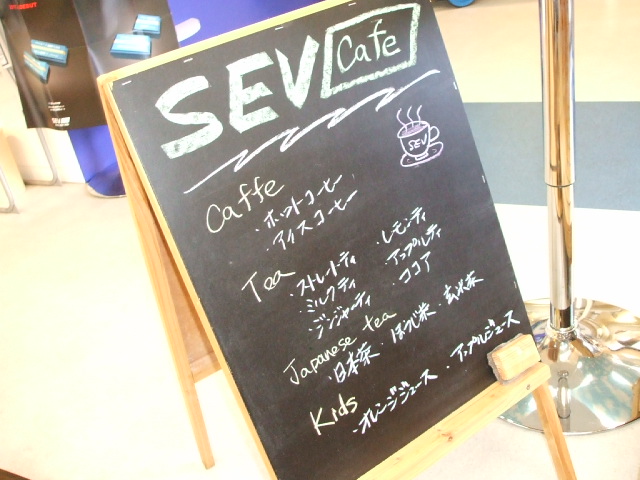 SEV Cafe
SEV
Caffe
・ホットコーヒー
・アイスコーヒー
Tea
・ストレートティ ・レモンティ
・ミルクティ ・アップルティ
・ジンジャーティ ・ココア
Japanese tea
・日本茶 ・ほうじ茶 ・玄米茶
Kids
・オレンジジュース ・アップルジュース
SEV